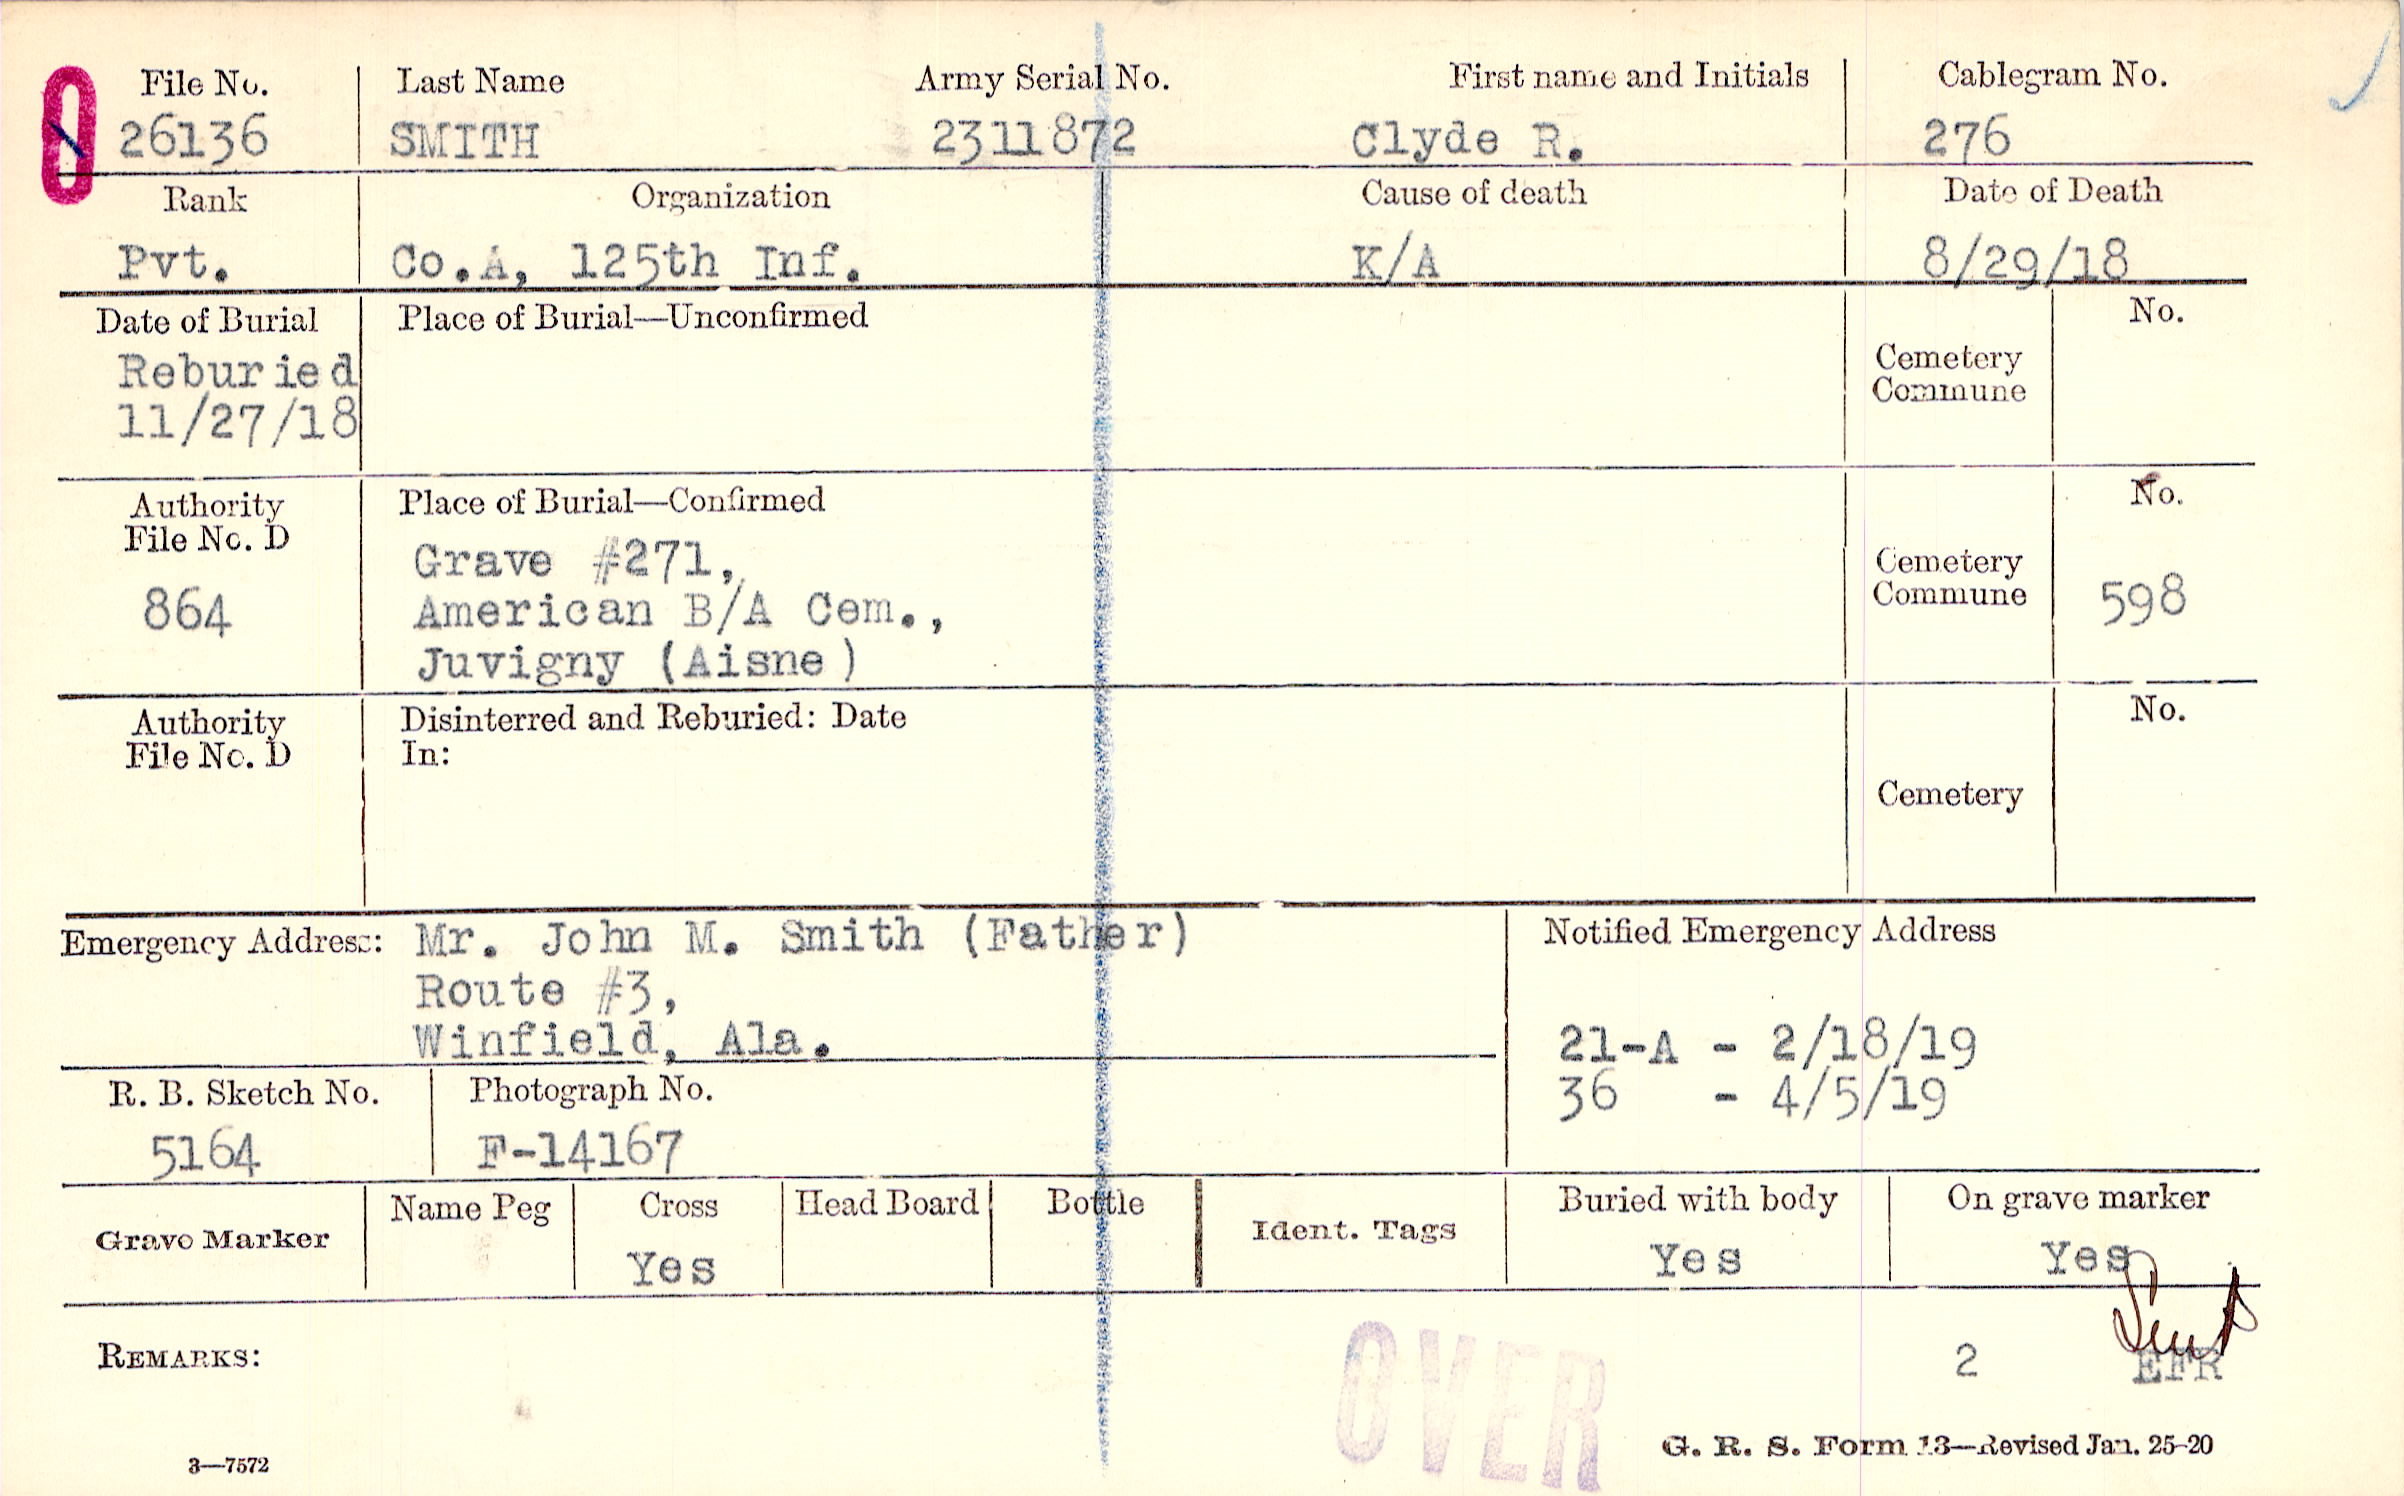 File No. Last Name Army Serial No. First name and Initials Cablegram No.
26136 SMITH 2311872 Clyde R. 276
Rank Organization Cause of death Date of Death
Pvt. Co.A, 125th Inf. K/A 8/29/18
Date of Burial Place of Burial—Unconfirmed No.
Reburied
11/27/18
Cemetery
Commune
Authority Place of Burial—Confirmed No.
File No. D
864
Grave #271,
American B/A Cem.,
Juvigny (Aisne)
Cemetery
Commune
598
Authority Disinterred and Reburied: Date No.
File No. D In:
Cemetery
Emergency Address: Mr. John M. Smith (Father)
Route #3,
Winfield, Ala.
Notified Emergency Address
21-A - 2/18/19
36 - 4/5/19
R. B. Sketch No. Photograph No.
5164 F-14167
Grave Marker Name Peg Cross Head Board Bottle Ident. Tags Buried with body On grave marker
Yes Yes Yes
REMARKS: 2 EFR
OVER
3—7572 G. R. S. Form 13—Revised Jan. 25-20